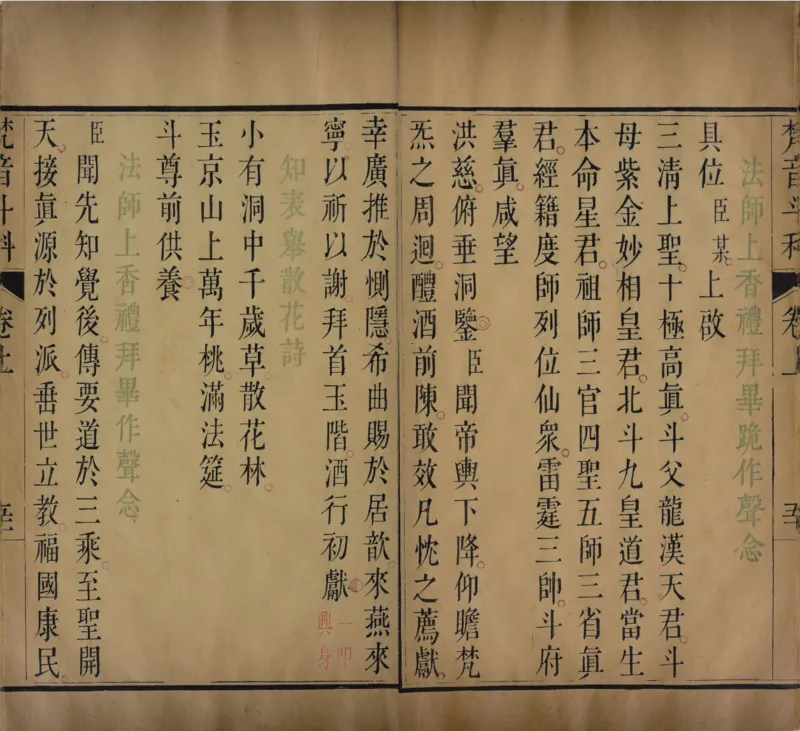 梵音斗科 卷上
法師上香禮拜畢跪作聲念
具位臣某上啟
三清上聖十極高眞斗父龍漢天君斗
母紫金妙相皇君北斗九皇道君當生
本命星君祖師三官四聖五師三省眞
君經籍度師列位仙衆雷霆三帥斗府
羣眞咸望
洪慈俯垂洞鑒臣聞帝輿下降仰瞻梵
炁之周迴醴酒前陳敢效凡忱之薦獻
幸廣推於惻隱希曲賜於居歆來燕來
寧以祈以謝拜首玉階酒行初獻一叩興身
知表舉散花詩
小有洞中千歲草散花林
玉京山上萬年桃滿法筵
斗尊前供養
法師上香禮拜畢作聲念
臣聞先知覺後傳要道於三乘至聖開
天接眞源於列派垂世立教福國康民
梵音斗科 卷上